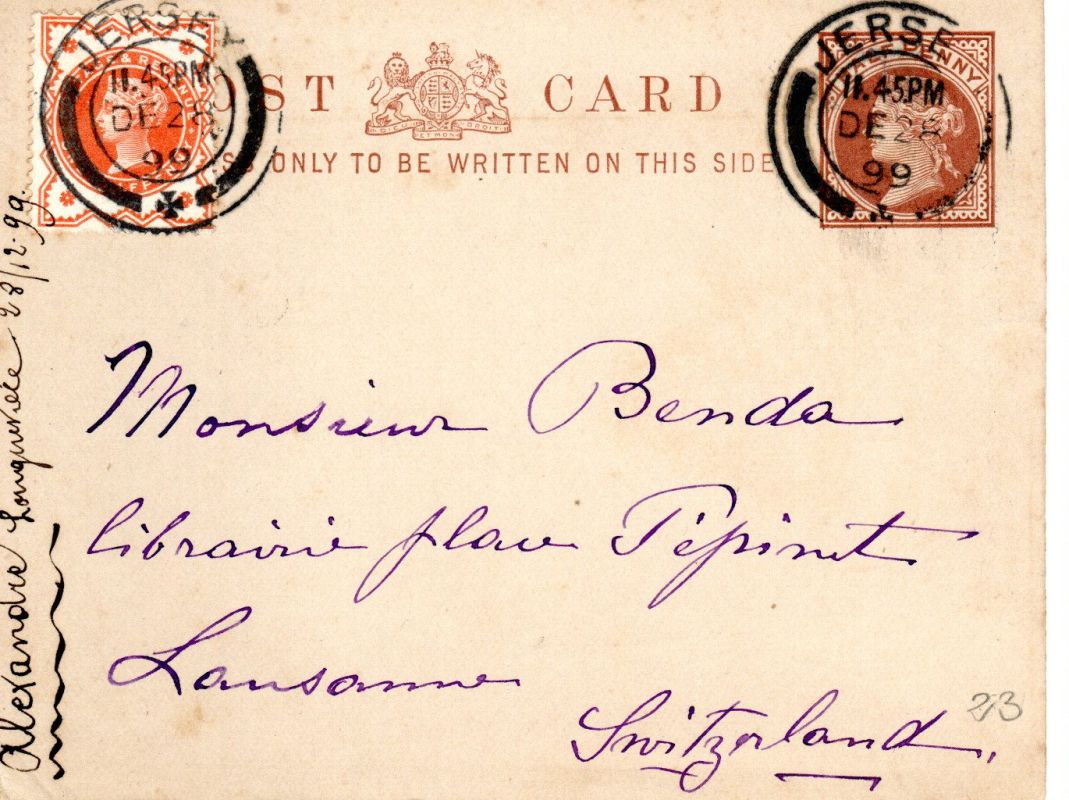 JERSEY
11.45PM
DE 28
99
JERSE
11.45PM
DE 28
99
HALFPENNY
OST CARD
DIEU ET MON DROIT
S ONLY TO BE WRITTEN ON THIS SIDE
Monsieur Benda
librairie place Pépinet
Lausanne
Switzerland,
23
Alexandre 28/12.99.